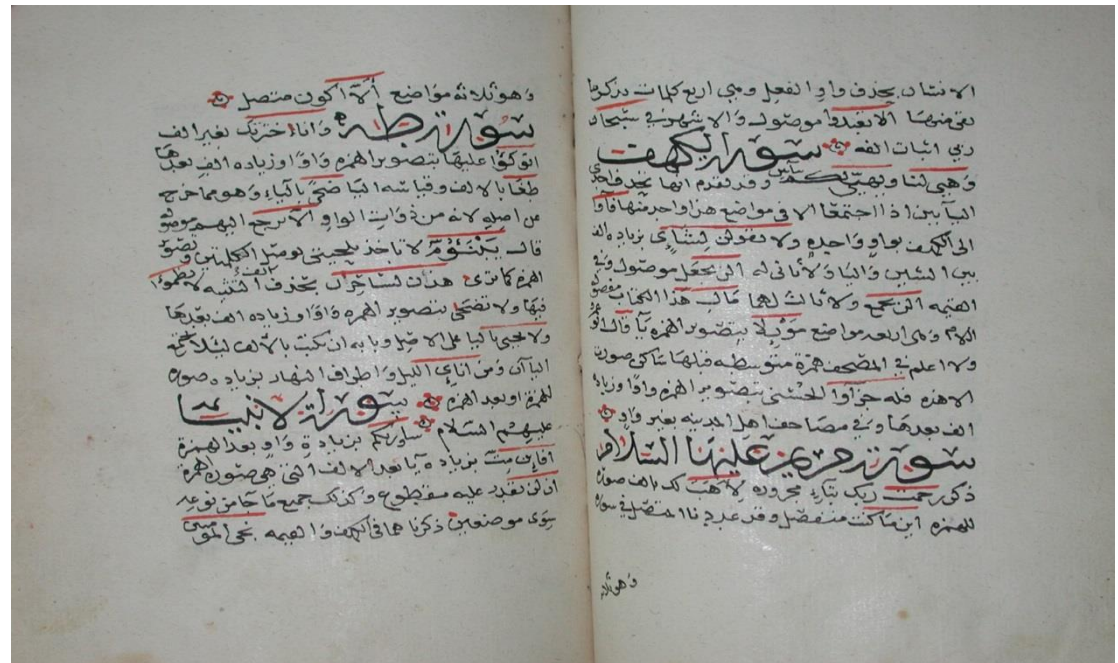 الانسان بحذف واو الفعل وهي اربع كلمات يذكر ما
بقي منها الا تعبدوا موصول والاشهر في سبحان
ربي اثبات الفه سورة الكهف
وهيي لنا ويهيي لكم وقد تقدم انها بحذف احدى
اليايين اذا اجتمعتا الا في مواضع هذا واحد منها فاوا
الى الكهف بواو واحدة ولا تقولن لشاي بزيادة الف
بين الشين واليا ولا ثاني له الن نجعل موصول وفي
القيمه الن نجمع ولا ثالث لهما مال هذا الكتاب مفصول
اللام وهي اربعه مواضع موئلا بتصوير الهمزه يا قال
ولا اعلم في المصحف همزة متوسطه قبلها ساكن صورت
الا هذه فله جزاوا الحسنى بتصوير الهمزه واوا وزياده
الف بعدها وفي مصاحف اهل المدينه بغير واو
سورة مريم عليها السلام
ذكر رحمت ربك بتاء مجروره لاهب لك بالف صورة
للهمزه اين ما كنت منفصل وقد عددنا المتصل في سورة
وهو ثلاثة
وهو ثلاثة مواضع ألا اكون متصل
سورة طه وانا اخترتك بغير الف
اتوكؤا عليها بتصوير الهمزه واوا وزياده الف بعدها
طغا بالالف وقياسه اليا ضحى بالياء وهو مما خرج
عن اصله لانه من ذوات الواو الا ترجع اليهم موصول
قال يبنؤم لا تاخذ بلحيتي بوصل الكلمتين وتصوير
الهمزه كما ترى هذان لسحران بحذف الف التثنيه لا تظموا
فيها ولا تضحى بتصوير الهمزه واوا وزياده الف بعدها
ولا تحيى باليا على الاصل وبابه ان يكتب بالالف ليلا تجتمع
اليا آن ومن اناي الليل واطراف النهار بزياده صورة
للهمزة او بعد الهمزه سورة الانبيا
عليهم السلام ساوريكم بزيادة واو بعد الهمزة
افاين مت بزياده يا بعد الالف التي هي صورة الهمزة
ان لن نقدر عليه مقطوع وكذلك جميع ما جا من نوعه
سوى موضعين ذكرنا هما في الكهف والقيمه نحي المومنين